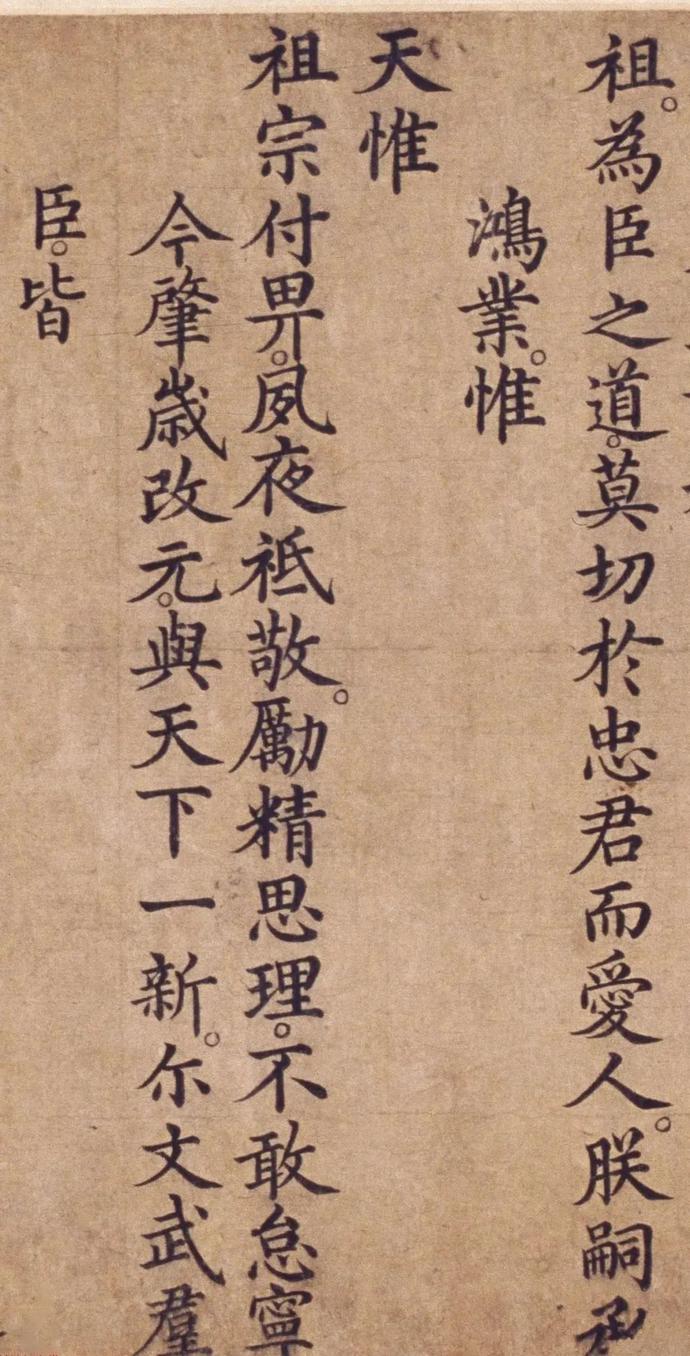 祖。為臣之道。莫切於忠君而愛人。朕嗣承
鴻業。惟
天惟
祖宗付畀。夙夜祗敬。勵精思理。不敢怠寧
今肇歲改元。與天下一新。尒文武羣
臣。皆